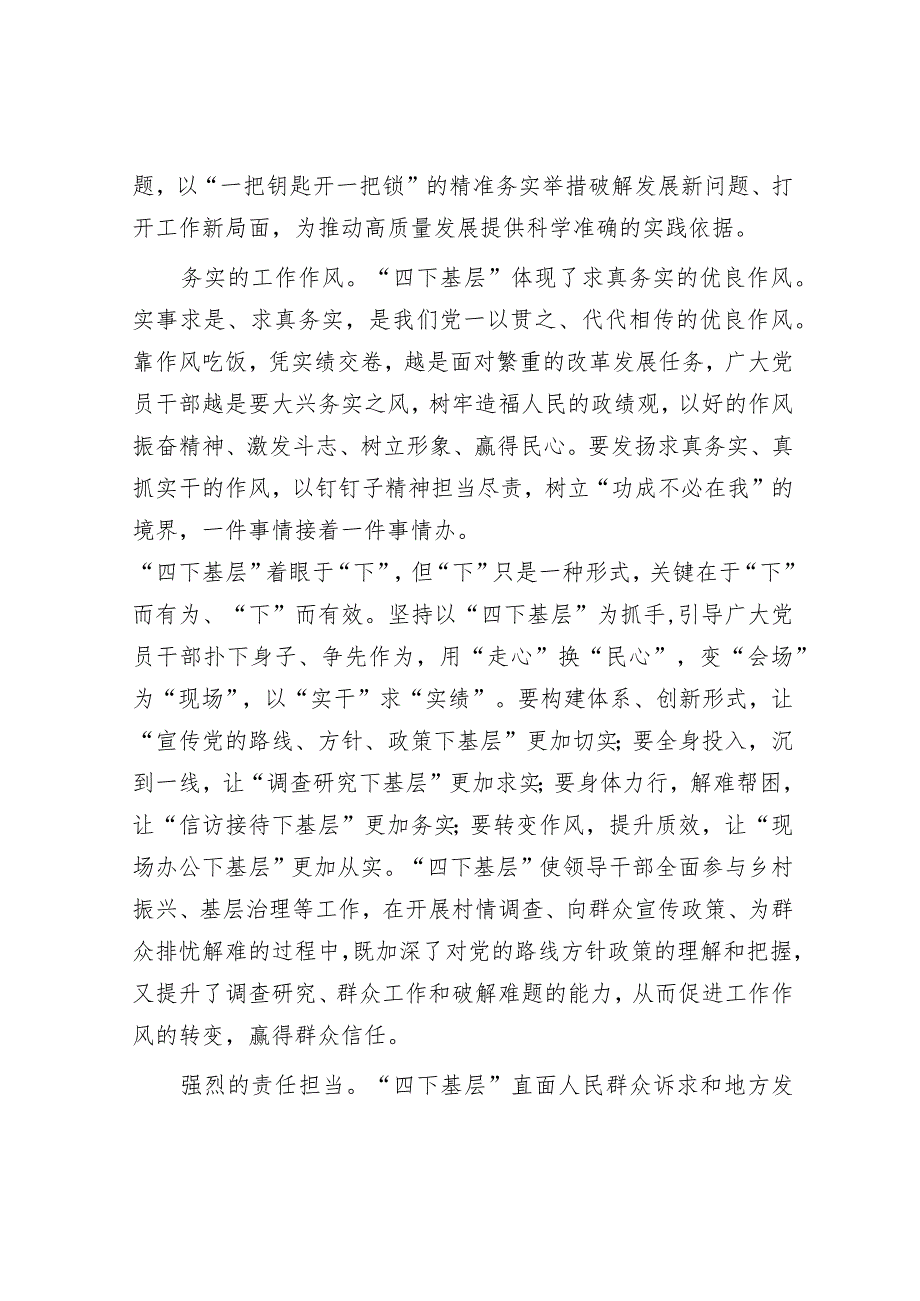 题，以“一把钥匙开一把锁”的精准务实举措破解发展新问题、打
开工作新局面，为推动高质量发展提供科学准确的实践依据。
务实的工作作风。“四下基层”体现了求真务实的优良作风。
实事求是、求真务实，是我们党一以贯之、代代相传的优良作风。
靠作风吃饭，凭实绩交卷，越是面对繁重的改革发展任务，广大党
员干部越是要大兴务实之风，树牢造福人民的政绩观，以好的作风
振奋精神、激发斗志、树立形象、赢得民心。要发扬求真务实、真
抓实干的作风，以钉钉子精神担当尽责，树立“功成不必在我”的
境界，一件事情接着一件事情办。
“四下基层”着眼于“下”，但“下”只是一种形式，关键在于“下”
而有为、“下”而有效。坚持以“四下基层”为抓手,引导广大党
员干部扑下身子、争先作为，用“走心”换“民心”，变“会场”
为“现场”，以“实干”求“实绩”。要构建体系、创新形式，让
“宣传党的路线、方针、政策下基层”更加切实;要全身投入，沉
到一线，让“调查研究下基层”更加求实;要身体力行，解难帮困，
让“信访接待下基层”更加务实;要转变作风，提升质效，让“现
场办公下基层”更加从实。“四下基层”使领导干部全面参与乡村
振兴、基层治理等工作，在开展村情调查、向群众宣传政策、为群
众排忧解难的过程中,既加深了对党的路线方针政策的理解和把握，
又提升了调查研究、群众工作和破解难题的能力，从而促进工作作
风的转变，赢得群众信任。
强烈的责任担当。“四下基层”直面人民群众诉求和地方发